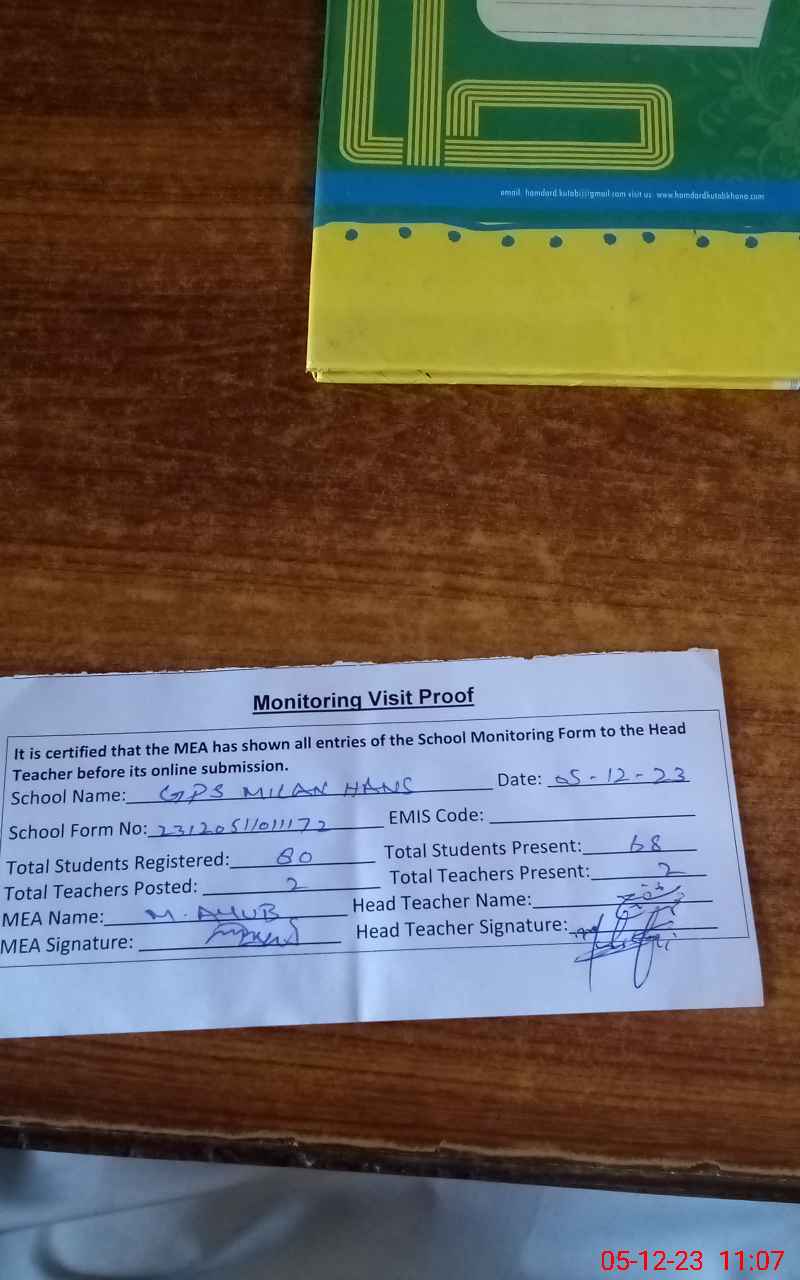 email: hamdard.kutab@gmail.com visit us: www.hamdardkutabkhana.com
Monitoring Visit Proof
It is certified that the MEA has shown all entries of the School Monitoring Form to the Head
Teacher before its online submission.
School Name: GPS MILAN HANS Date: 05-12-23
School Form No: EMIS Code:
Total Students Registered: 80 Total Students Present: 68
Total Teachers Posted: 2 Total Teachers Present: 2
MEA Name: M. AYUB Head Teacher Name:
MEA Signature: Head Teacher Signature:
05-12-23 11:07